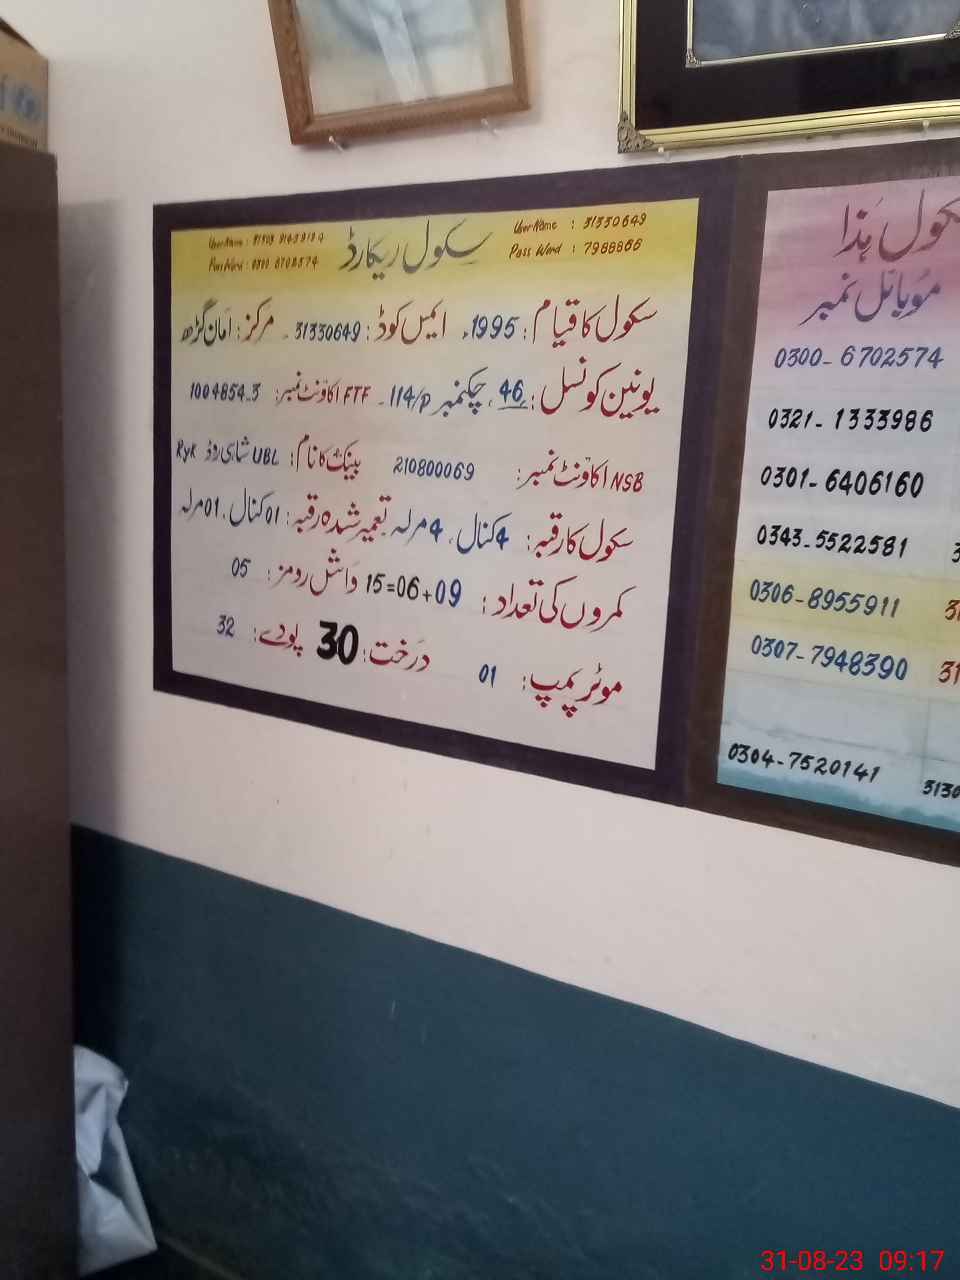 سکول ریکارڈ
User Name : 31330649
Pass Word : 7988866
سکول کا قیام: 1995ء ایمس کوڈ: 31330649۔ مرکز: امان گڑھ
یونین کونسل: 46، چکنمبر 114/P۔ FTF اکاؤنٹ نمبر: 1004854-3
NSB اکاؤنٹ نمبر: 210800069 بینک کا نام: UBL شاہی روڈ RYK
سکول کا رقبہ: 4 کنال، 4 مرلہ۔ تعمیر شدہ رقبہ: 01 کنال، 01 مرلہ
کمروں کی تعداد: 09+06=15 واش رومز: 05
موٹر پمپ: 01 درخت: 30 پودے: 32
سکول ہٰذا
موبائل نمبر
0300-6702574
0321-1333986
0301-6406160
0343-5522581
0306-8955911
0307-7948390
0304-7520141
31-08-23 09:17